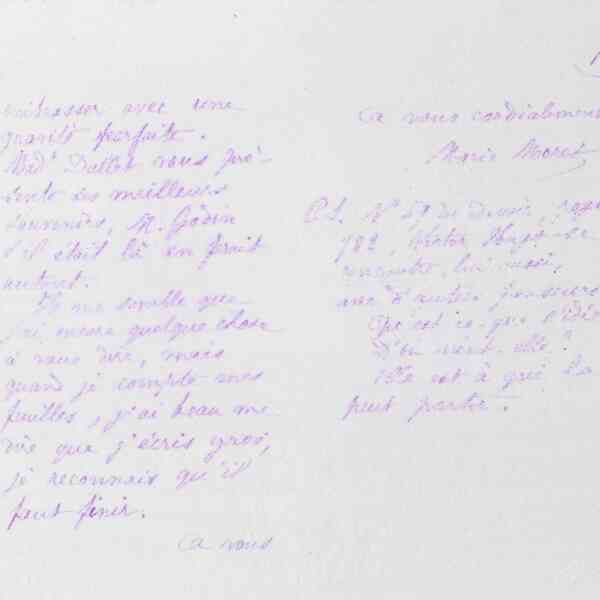 embrasser avec une
gravité parfaite.
Mad.e Dallet vous pré-
sente ses meilleurs
souvenirs, M. Godin
s'il était là en ferait
autant.
Il me semble que
j'ai encore quelque chose
à vous dire, mais
quand je compte mes
feuilles, j'ai beau me
dire que j'écris gros,
je reconnais qu'il
faut finir.
à vous
à vous cordialement
Marie Moret
P.S. N° du Devoir, page
782, Victor Hugo se
rencontre, lui aussi,
avec d'autres penseurs
Qu'est-ce que l'idée
D'où vient-elle?
Elle est à qui la
peut porter.